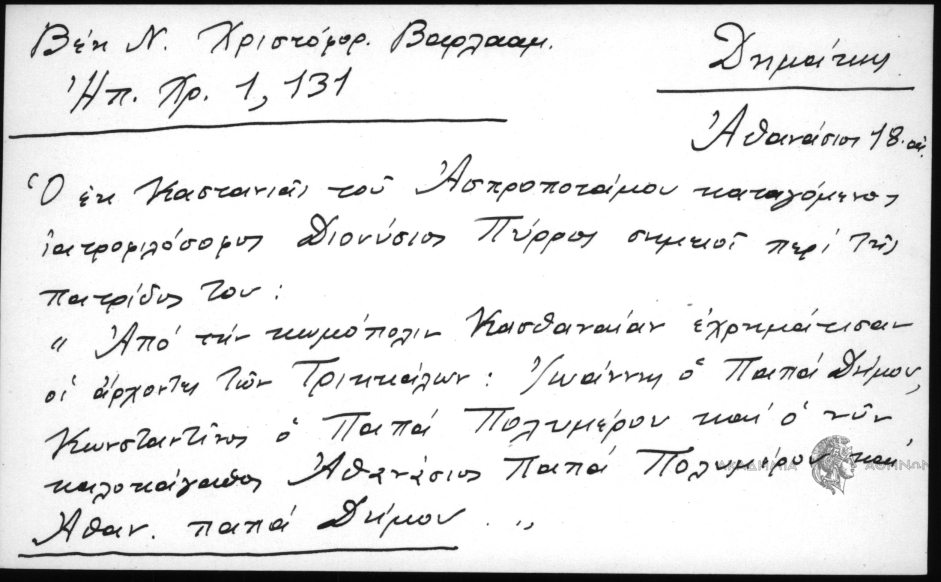 Βέη Ν. Χριστόφορ. Βαρλααμ.
Ἠπ. Χρ. 1, 131
Δημάκης
Ἀθανάσιος 18. αἰ.
Ὁ ἐκ Καστανιᾶς τοῦ Ἀσπροποτάμου καταγόμενος
ἰατροφιλόσοφος Διονύσιος Πύρρος σημειοῖ περί τῆς
πατρίδος του :
" Ἀπό τήν κωμόπολιν Κασθαναίαν ἐχρημάτισαν
οἱ ἄρχοντες τῶν Τρικκάλων : Ἰωάννης ὁ Παπά Δήμου,
Κωνσταντῖνος ὁ Παπά Πολυμέρου καί ὁ νῦν
καλοκάγαθος Ἀθανάσιος Παπά Πολυμέρου καί
Ἀθαν. παπά Δήμου . "
ΑΚΑΔΗΜΙΑ ΑΘΗΝΩΝ